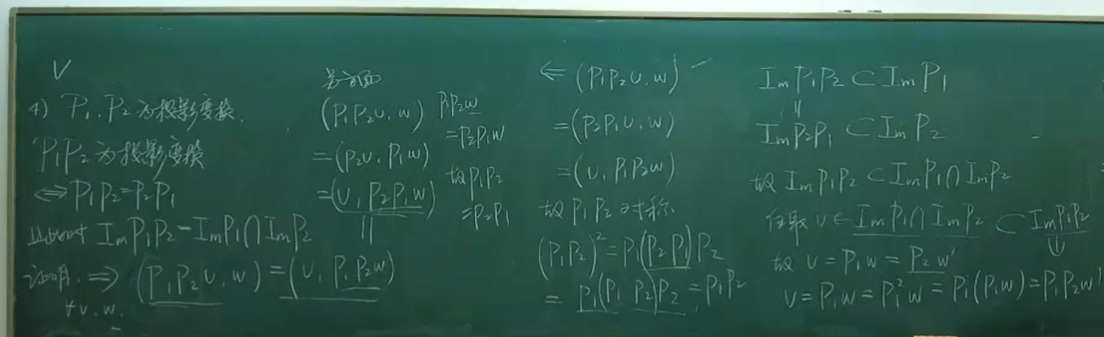 V
4) P₁, P₂ 为投影变换.
P₁P₂ 为投影变换
⇔ P₁P₂=P₂P₁
此时 ImP₁P₂=ImP₁∩ImP₂
证明. ⇒ (P₁P₂v, w)=(v, P₁P₂w)
∀v, w.
另方面
(P₁P₂v, w)
=(P₂v, P₁w)
=(v, P₂P₁w)
||
P₁P₂w
=P₂P₁w
故P₁P₂
=P₂P₁
⇐ (P₁P₂v, w)
=(P₂P₁v, w)
=(v, P₁P₂w)
故 P₁P₂ 对称.
(P₁P₂)²=P₁(P₂P₁)P₂
=P₁(P₁P₂)P₂=P₁P₂
ImP₁P₂⊂ImP₁
||
ImP₂P₁⊂ImP₂
故 ImP₁P₂⊂ImP₁∩ImP₂
任取 v∈ImP₁∩ImP₂⊂ImP₁P₂
故 v=P₁w=P₂w'
v=P₁w=P₁²w=P₁(P₁w)=P₁P₂w'